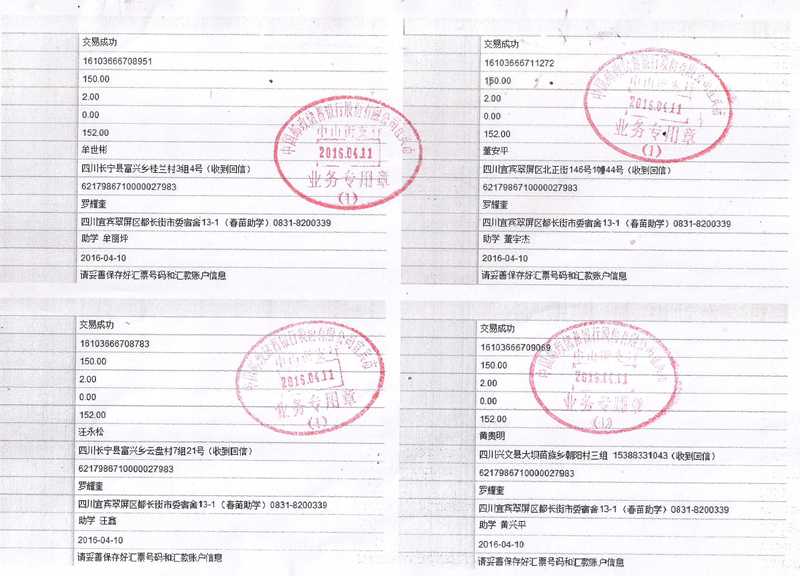 交易成功
16103666708951
150.00
2.00
0.00
152.00
牟世彬
四川长宁县富兴乡桂兰村3组4号（收到回信）
6217986710000027983
罗耀奎
四川宜宾翠屏区都长街市委宿舍13-1（春苗助学）0831-8200339
助学 牟丽坪
2016-04-10
请妥善保存好汇票号码和汇款账户信息
2016.04.11
业务专用章
(1)
交易成功
16103666711272
150.00
2.00
0.00
152.00
董安平
四川宜宾翠屏区北正街146号10幢44号（收到回信）
6217986710000027983
罗耀奎
四川宜宾翠屏区都长街市委宿舍13-1（春苗助学）0831-8200339
助学 董宇杰
2016-04-10
请妥善保存好汇票号码和汇款账户信息
2016.04.11
业务专用章
(1)
交易成功
16103666708783
150.00
2.00
0.00
152.00
汪永松
四川长宁县富兴乡云盘村7组21号（收到回信）
6217986710000027983
罗耀奎
四川宜宾翠屏区都长街市委宿舍13-1（春苗助学）0831-8200339
助学 汪鑫
2016-04-10
请妥善保存好汇票号码和汇款账户信息
2016.04.11
业务专用章
(1)
交易成功
16103666709069
150.00
2.00
0.00
152.00
黄贵明
四川兴文县大坝苗族乡朝阳村三组 15388331043（收到回信）
6217986710000027983
罗耀奎
四川宜宾翠屏区都长街市委宿舍13-1（春苗助学）0831-8200339
助学 黄兴平
2016-04-10
请妥善保存好汇票号码和汇款账户信息
2016.04.11
业务专用章